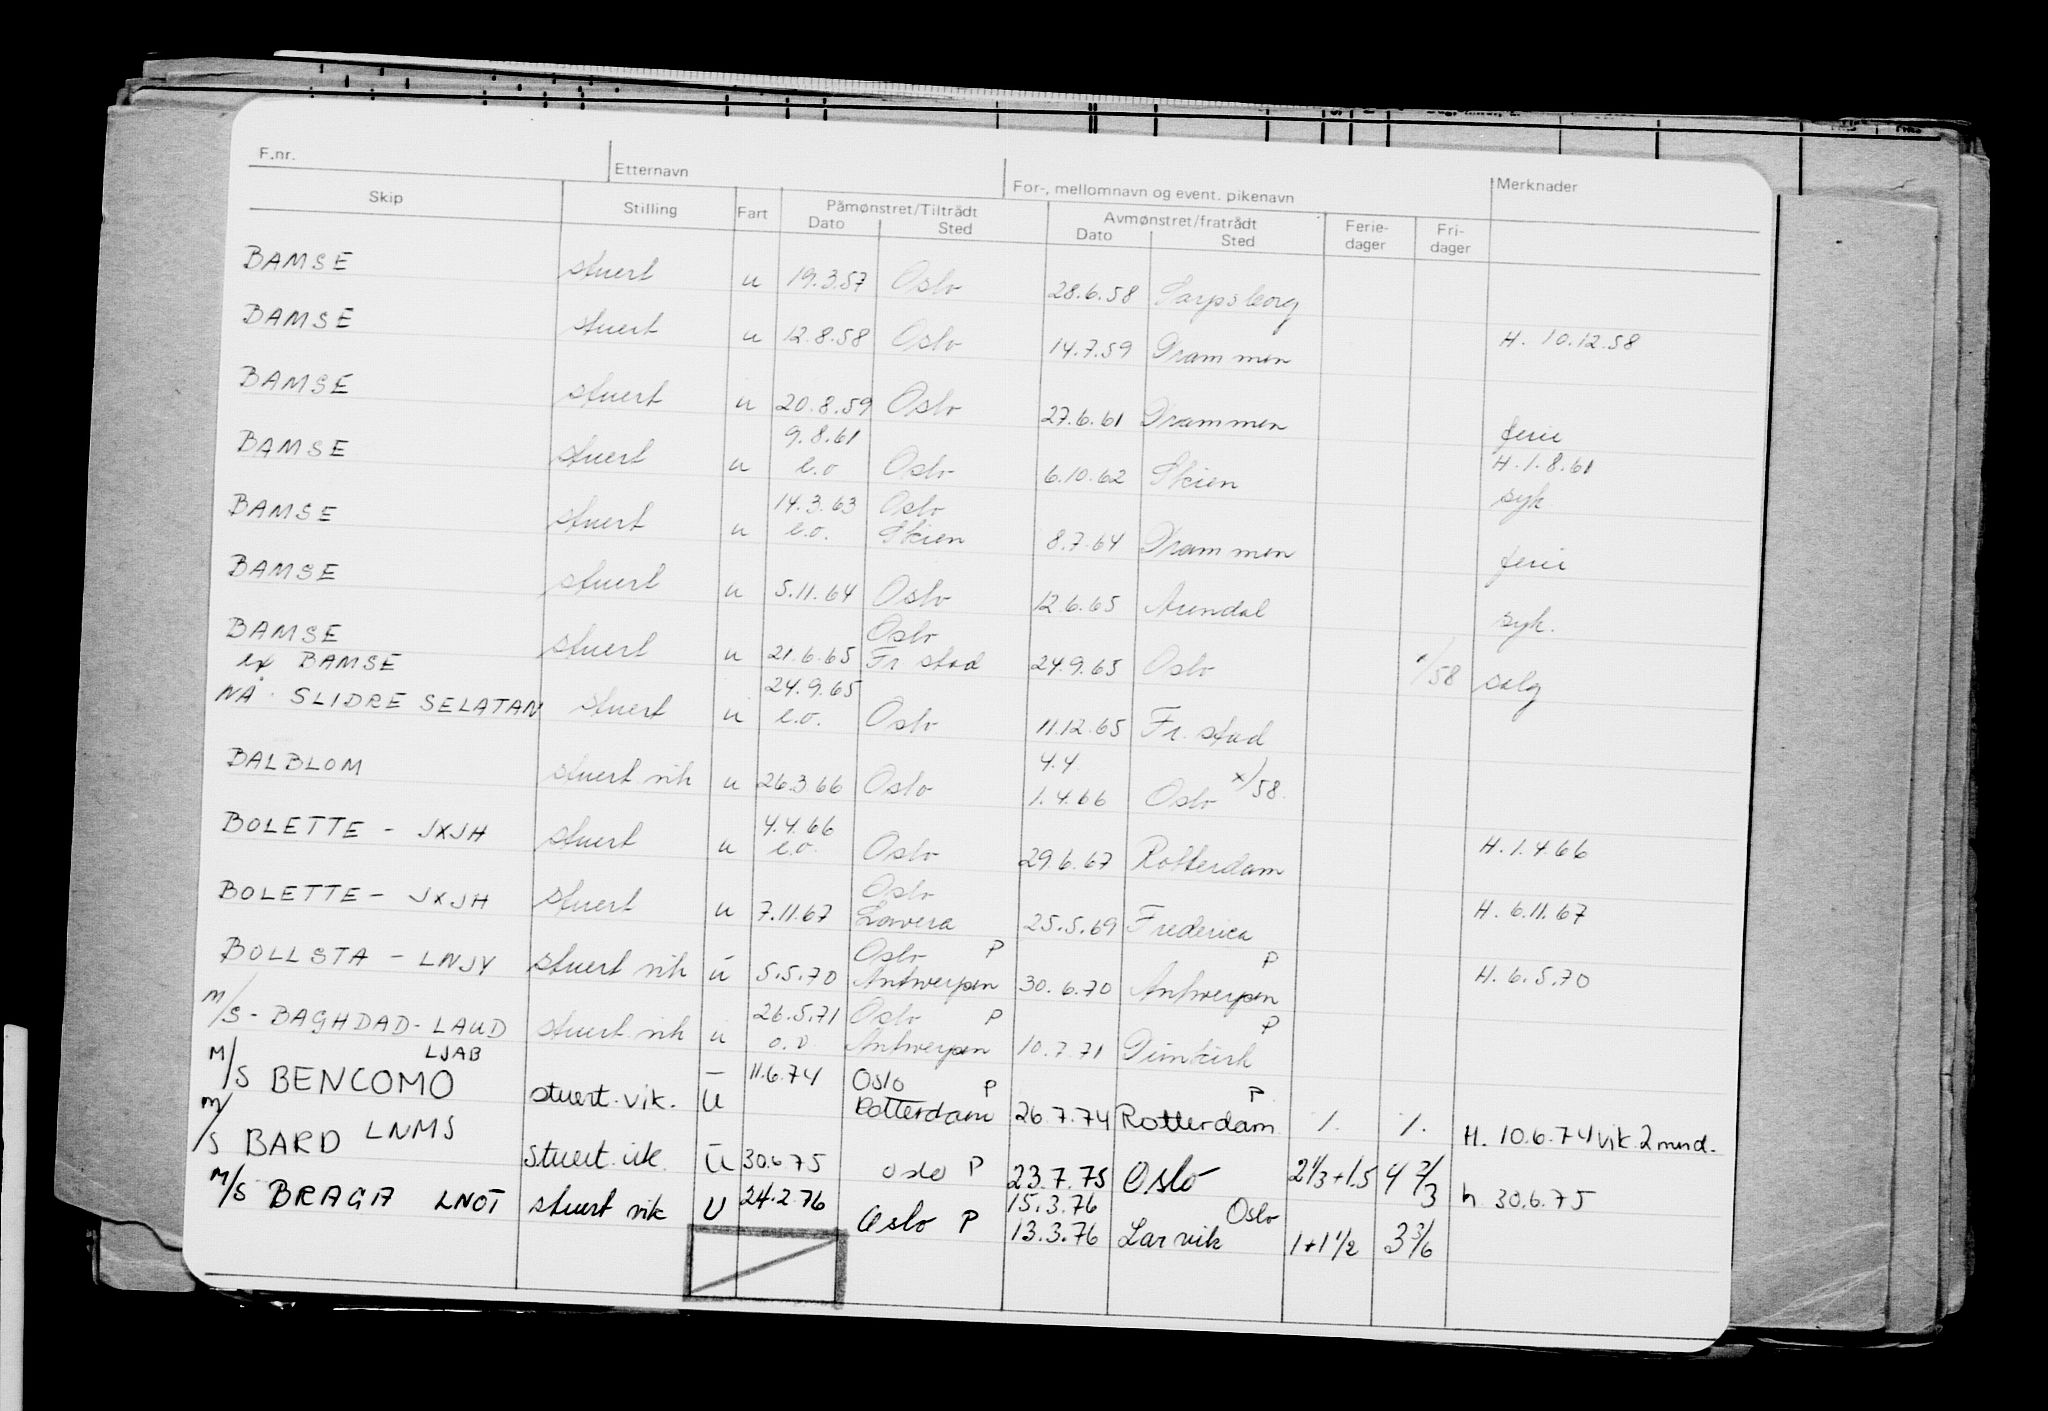 F.nr. Etternavn For-, mellomnavn og event. pikenavn Merknader
Skip Stilling Fart Påmønstret/Tiltrådt Avmønstret/fratrådt Ferie- Fri-
Dato Sted Dato Sted dager dager
BAMSE stuert u 19.3.57 Oslo 28.6.58 Sarpsborg
BAMSE stuert u 12.8.58 Oslo 14.7.59 Drammen H. 10.12.58
BAMSE stuert u 20.8.59 Oslo 27.6.61 Drammen ferie
9.8.61 H. 1.8.61
BAMSE stuert u e.o Oslo 6.10.62 Skien syk
14.3.63 Oslo
BAMSE stuert u e.o. Skien 8.7.64 Drammen ferie
BAMSE stuert u 5.11.64 Oslo 12.6.65 Arendal syk.
Oslo
BAMSE stuert u 21.6.65 Fr.stad 24.9.65 Oslo x/58 salg
ex BAMSE 24.9.65
NÅ. SLIDRE SELATAN stuert u e.o. Oslo 11.12.65 Fr. stad
4.4
BALBLOM stuert vik u 26.3 66 Oslo 1.4.66 Oslo x/58.
4.4.66
BOLETTE - JXJH stuert u e.o. Oslo 29.6.67 Rotterdam H.1.4 66
Oslo
BOLETTE - JXJH stuert u 7.11.67 Lavera 25.5.69 Frederica H. 6.11.67
Oslo P P
BOLLSTA - LNJY stuert vik u 5.5.70 Antwerpen 30.6.70 Antwerpen H. 6.5.70
26.5.71 Oslo P P
M/S - BAGHDAD - LAUD stuert vik u o.o. Antwerpen 10.7.71 Dunkirk
LJAB 11.6.74 Oslo P P
M/S BENCOMO stuert. vik. U Rotterdam 26.7.74 Rotterdam /. /. H. 10.6.74 vik. 2 mnd.
M/S BARD LNMS stuert. vik. U 30.6.75 oslo P 23.7.75 Oslo 2 1/3 + 1.5 4 2/3 h 30.6.75
15.3.76 Oslo
M/S BRAGA LNOT stuert vik U 24.2.76 Oslo P 13.3.76 Larvik 1+1 1/2 3 3/6